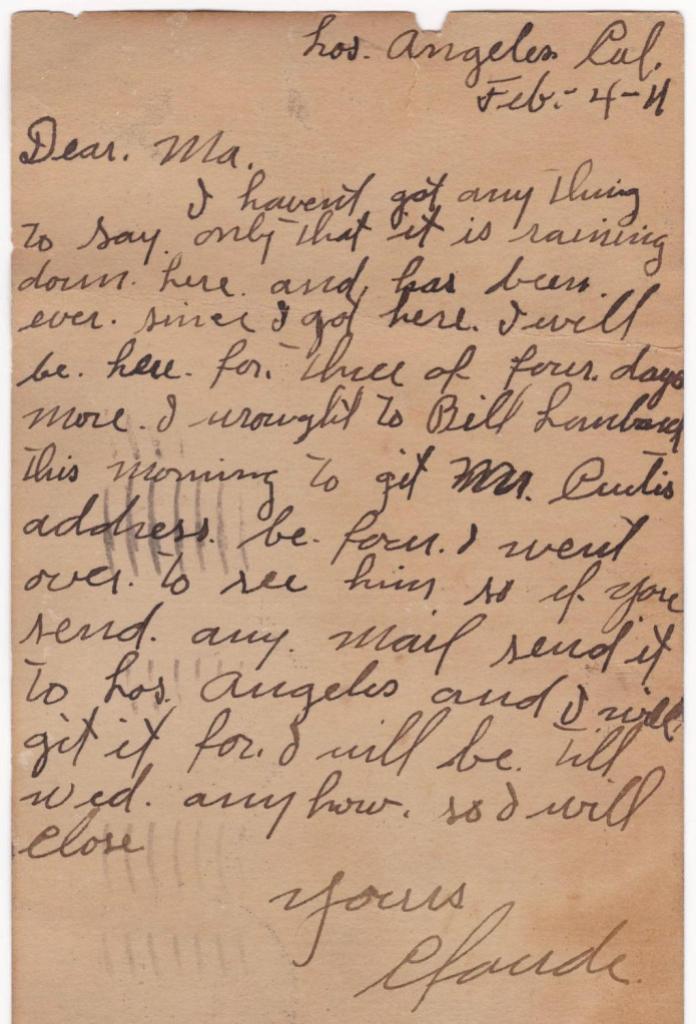 Los. Angeles. Cal.
Feb. - 4 - 11
Dear. Ma.
I havent got any thing
to say. only that it is raining
down. here. and, has been.
ever. since I got here. I will
be. here. for. three of four. days
more. I wrought to Bill
this morning to git Mr. Curtis
address. be. four. I went
over. to see him so if you
send. any. mail send it
to Los. Angeles and I will
git it for. I will be. till
wed. anyhow. so I will
close
Yours
Claude.